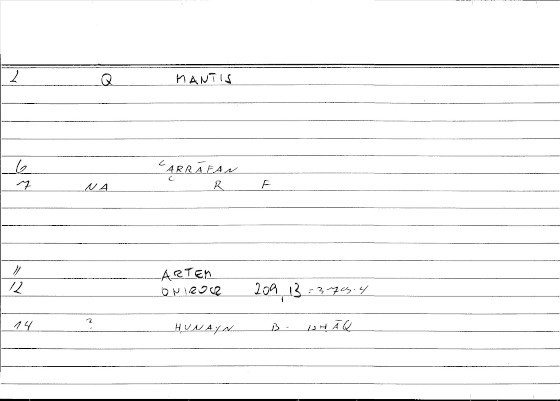 2 Q MANTIS
6 ʿARRĀFAN
7 NA ʿ R F
11 ARTEM
12 ONIROCR 209,13 = 375.4
14 ? HUNAYN B. ISHĀQ